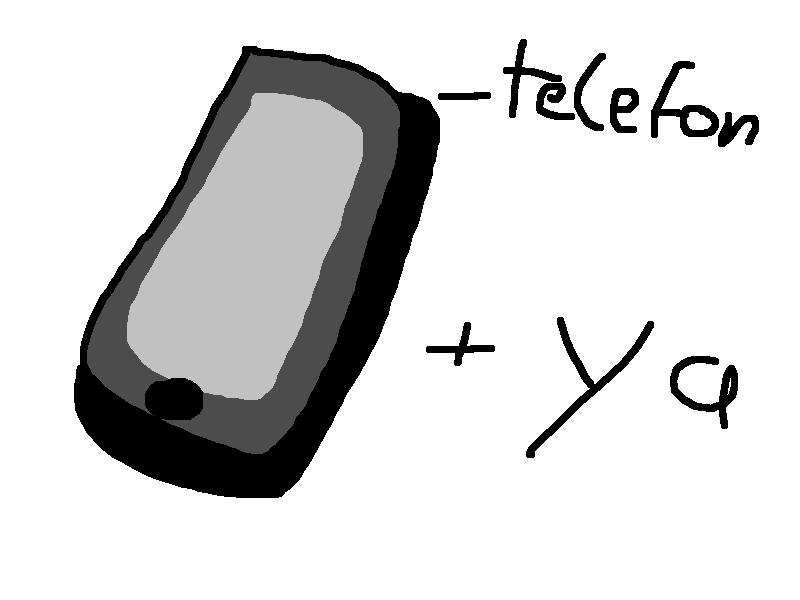 - telefon
+ Ya